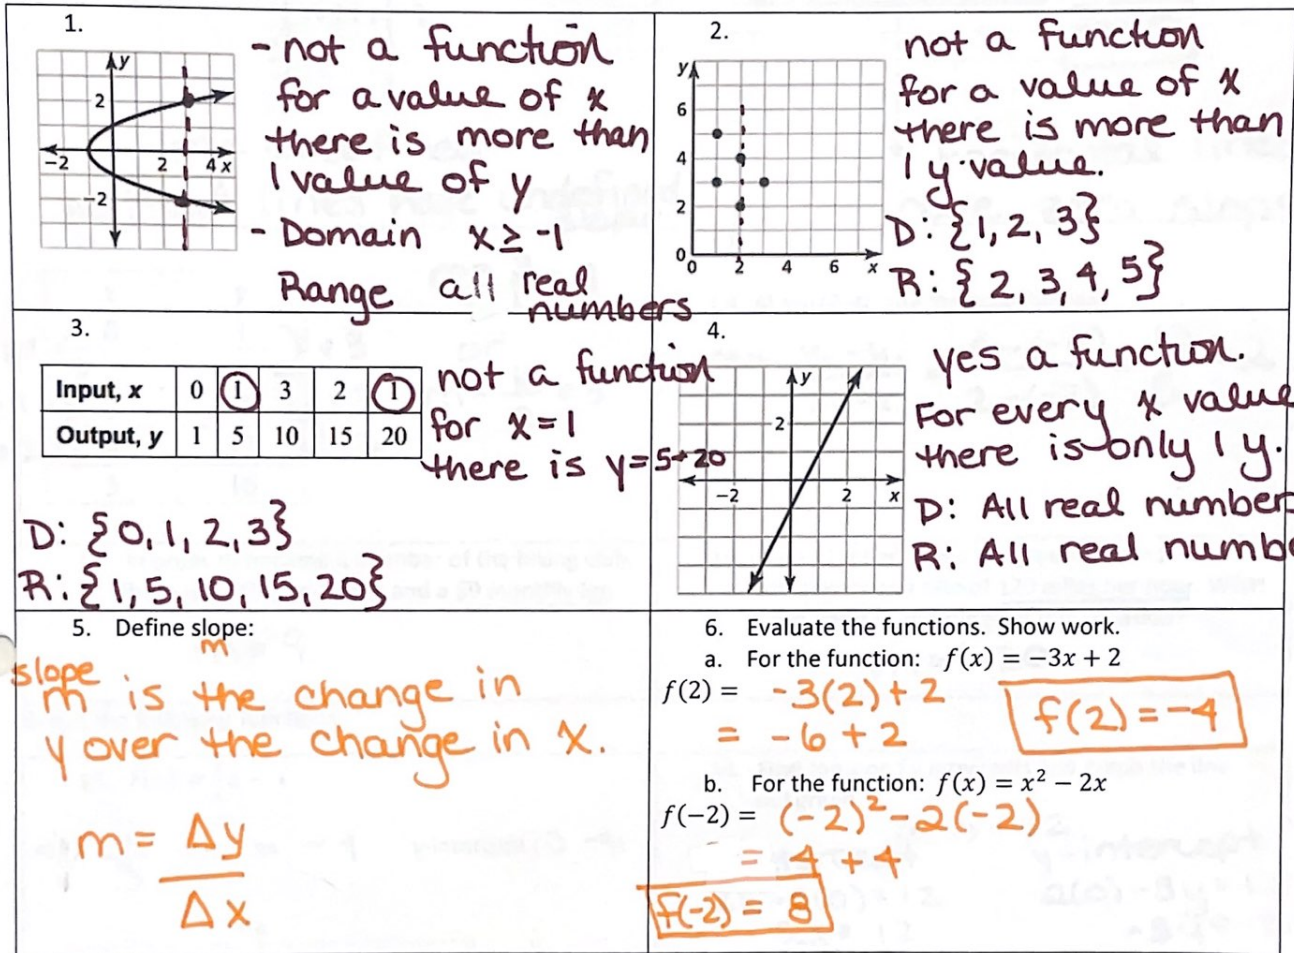 1.
y
2
-2
2
4 x
-2
- not a function
for a value of x
there is more than
1 value of y
- Domain x ≥ -1
Range all real
numbers
2.
y
6
4
2
0
0 2 4 6 x
not a function
for a value of x
there is more than
1 y value.
D: {1, 2, 3}
R: {2, 3, 4, 5}
3.
Input, x 0 1 3 2 1
Output, y 1 5 10 15 20
not a function
for x = 1
there is y = 5 + 20
D: {0, 1, 2, 3}
R: {1, 5, 10, 15, 20}
4.
y
2
-2
2
x
yes a function.
For every x value
there is only 1 y.
D: All real number
R: All real numbe
5. Define slope:
m
slope
m is the change in
y over the change in x.
m = Δy
Δx
6. Evaluate the functions. Show work.
a. For the function: f(x) = -3x + 2
f(2) = -3(2) + 2
= -6 + 2
f(2) = -4
b. For the function: f(x) = x² − 2x
f(−2) = (-2)² - 2(-2)
= 4 + 4
f(-2) = 8